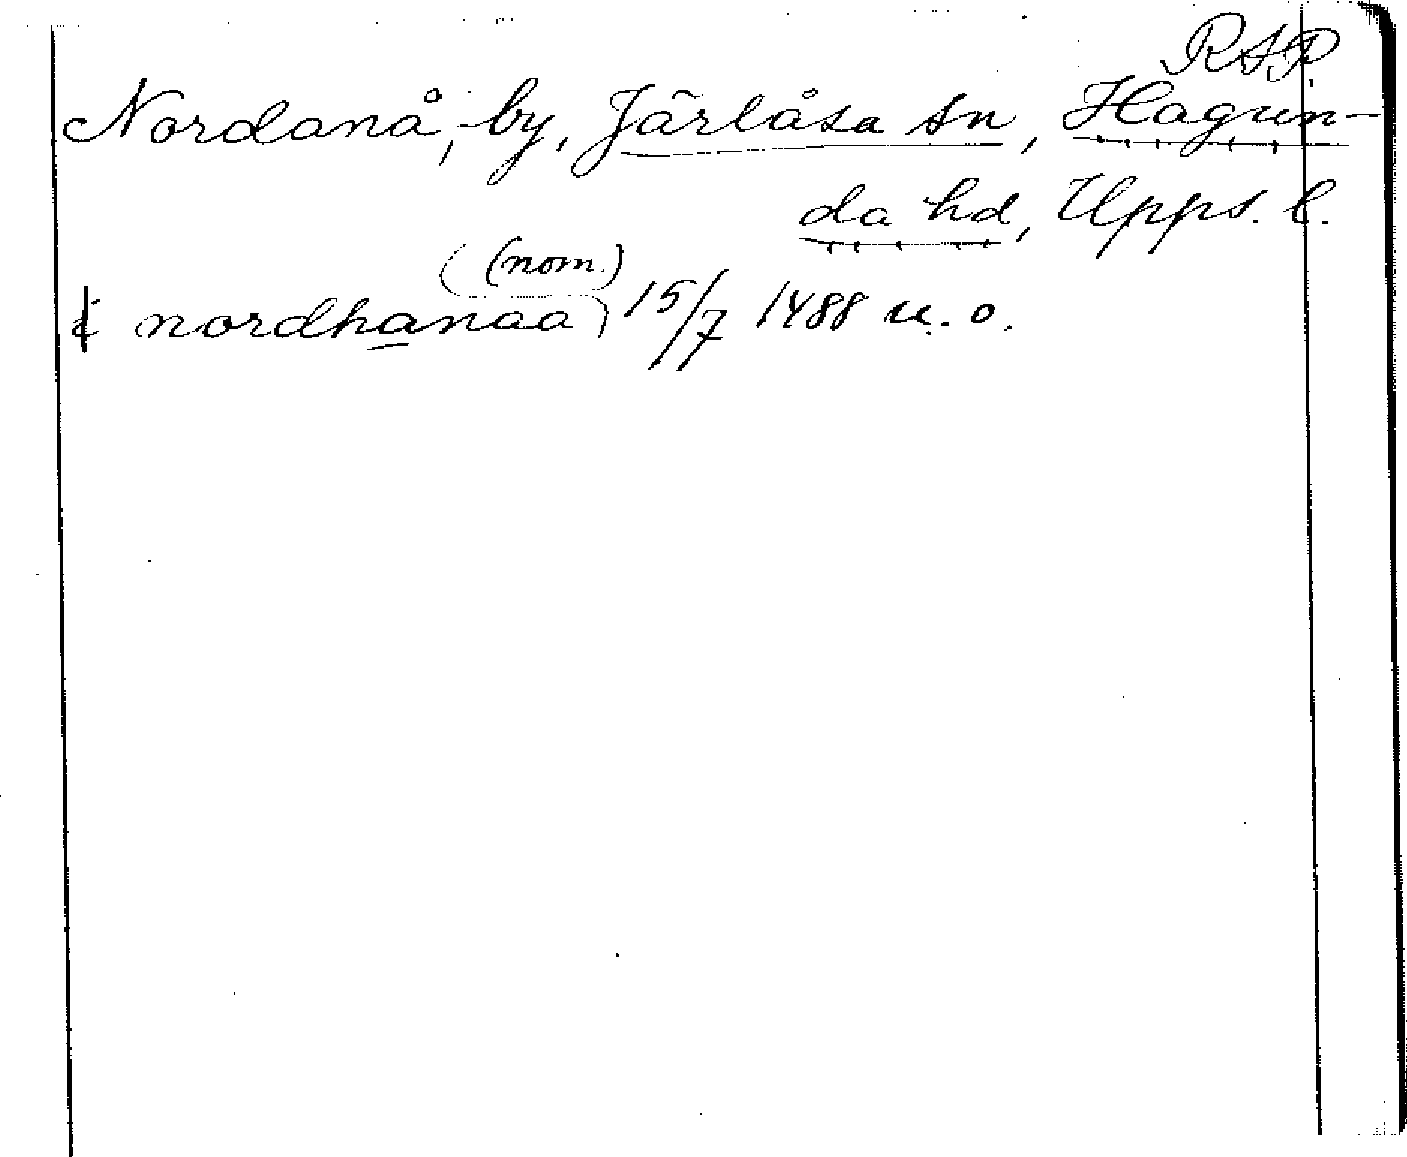 RAP.
Nordanå, by, Järlåsa sn, Hagun-
da hd, Upps. l.
(nom.)
¢ nordhanaa 15/7 1488 u. o.